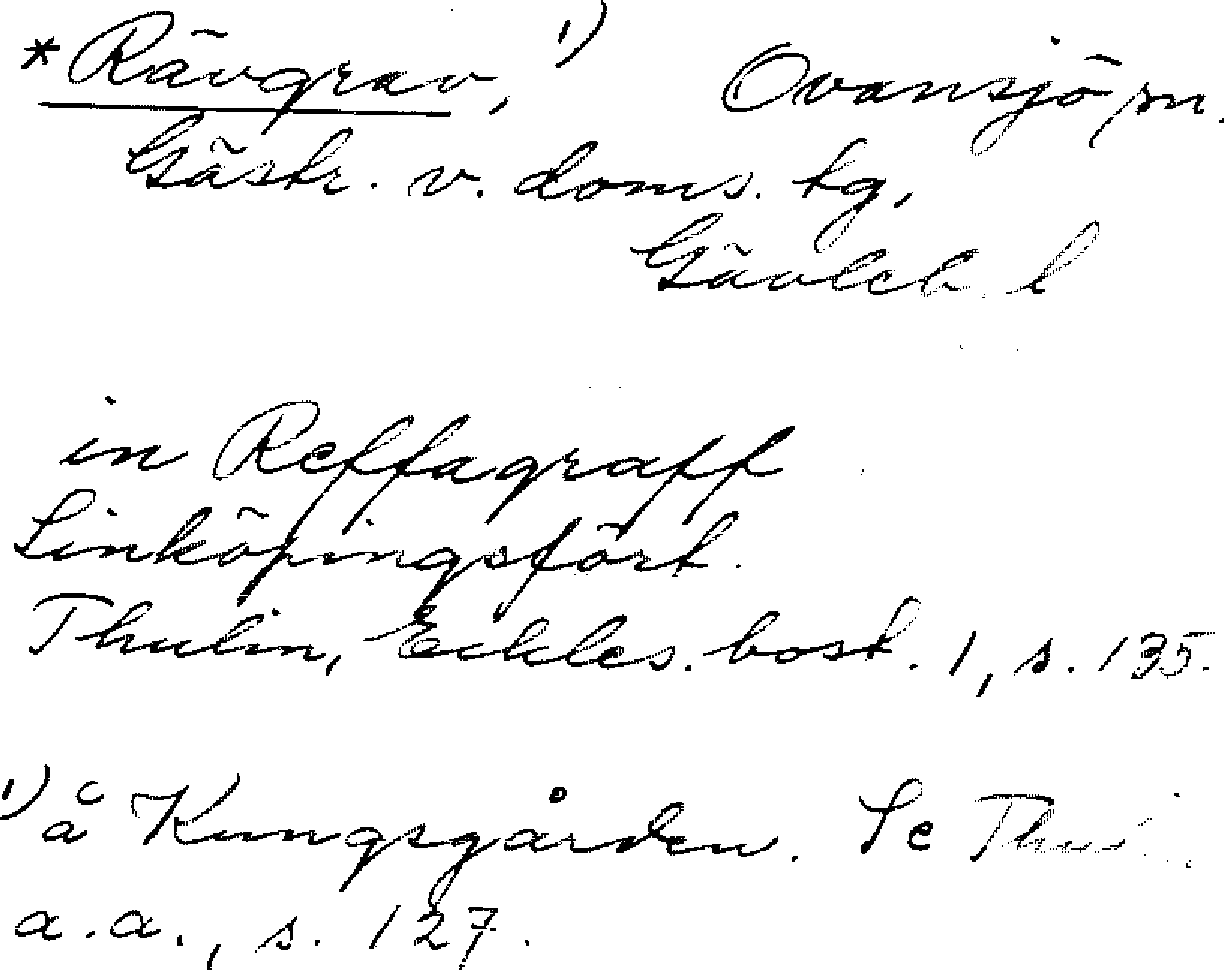 *Rävgrav,¹⁾ Ovansjö sn.
Gästr. v. doms. tg,
Gävleb. l
in Reffagraff
Linköpingsfört.
Thulin, Eckles. bost. 1, s. 135.
¹⁾ å Kungsgården. Se Thu
a.a., s. 127.